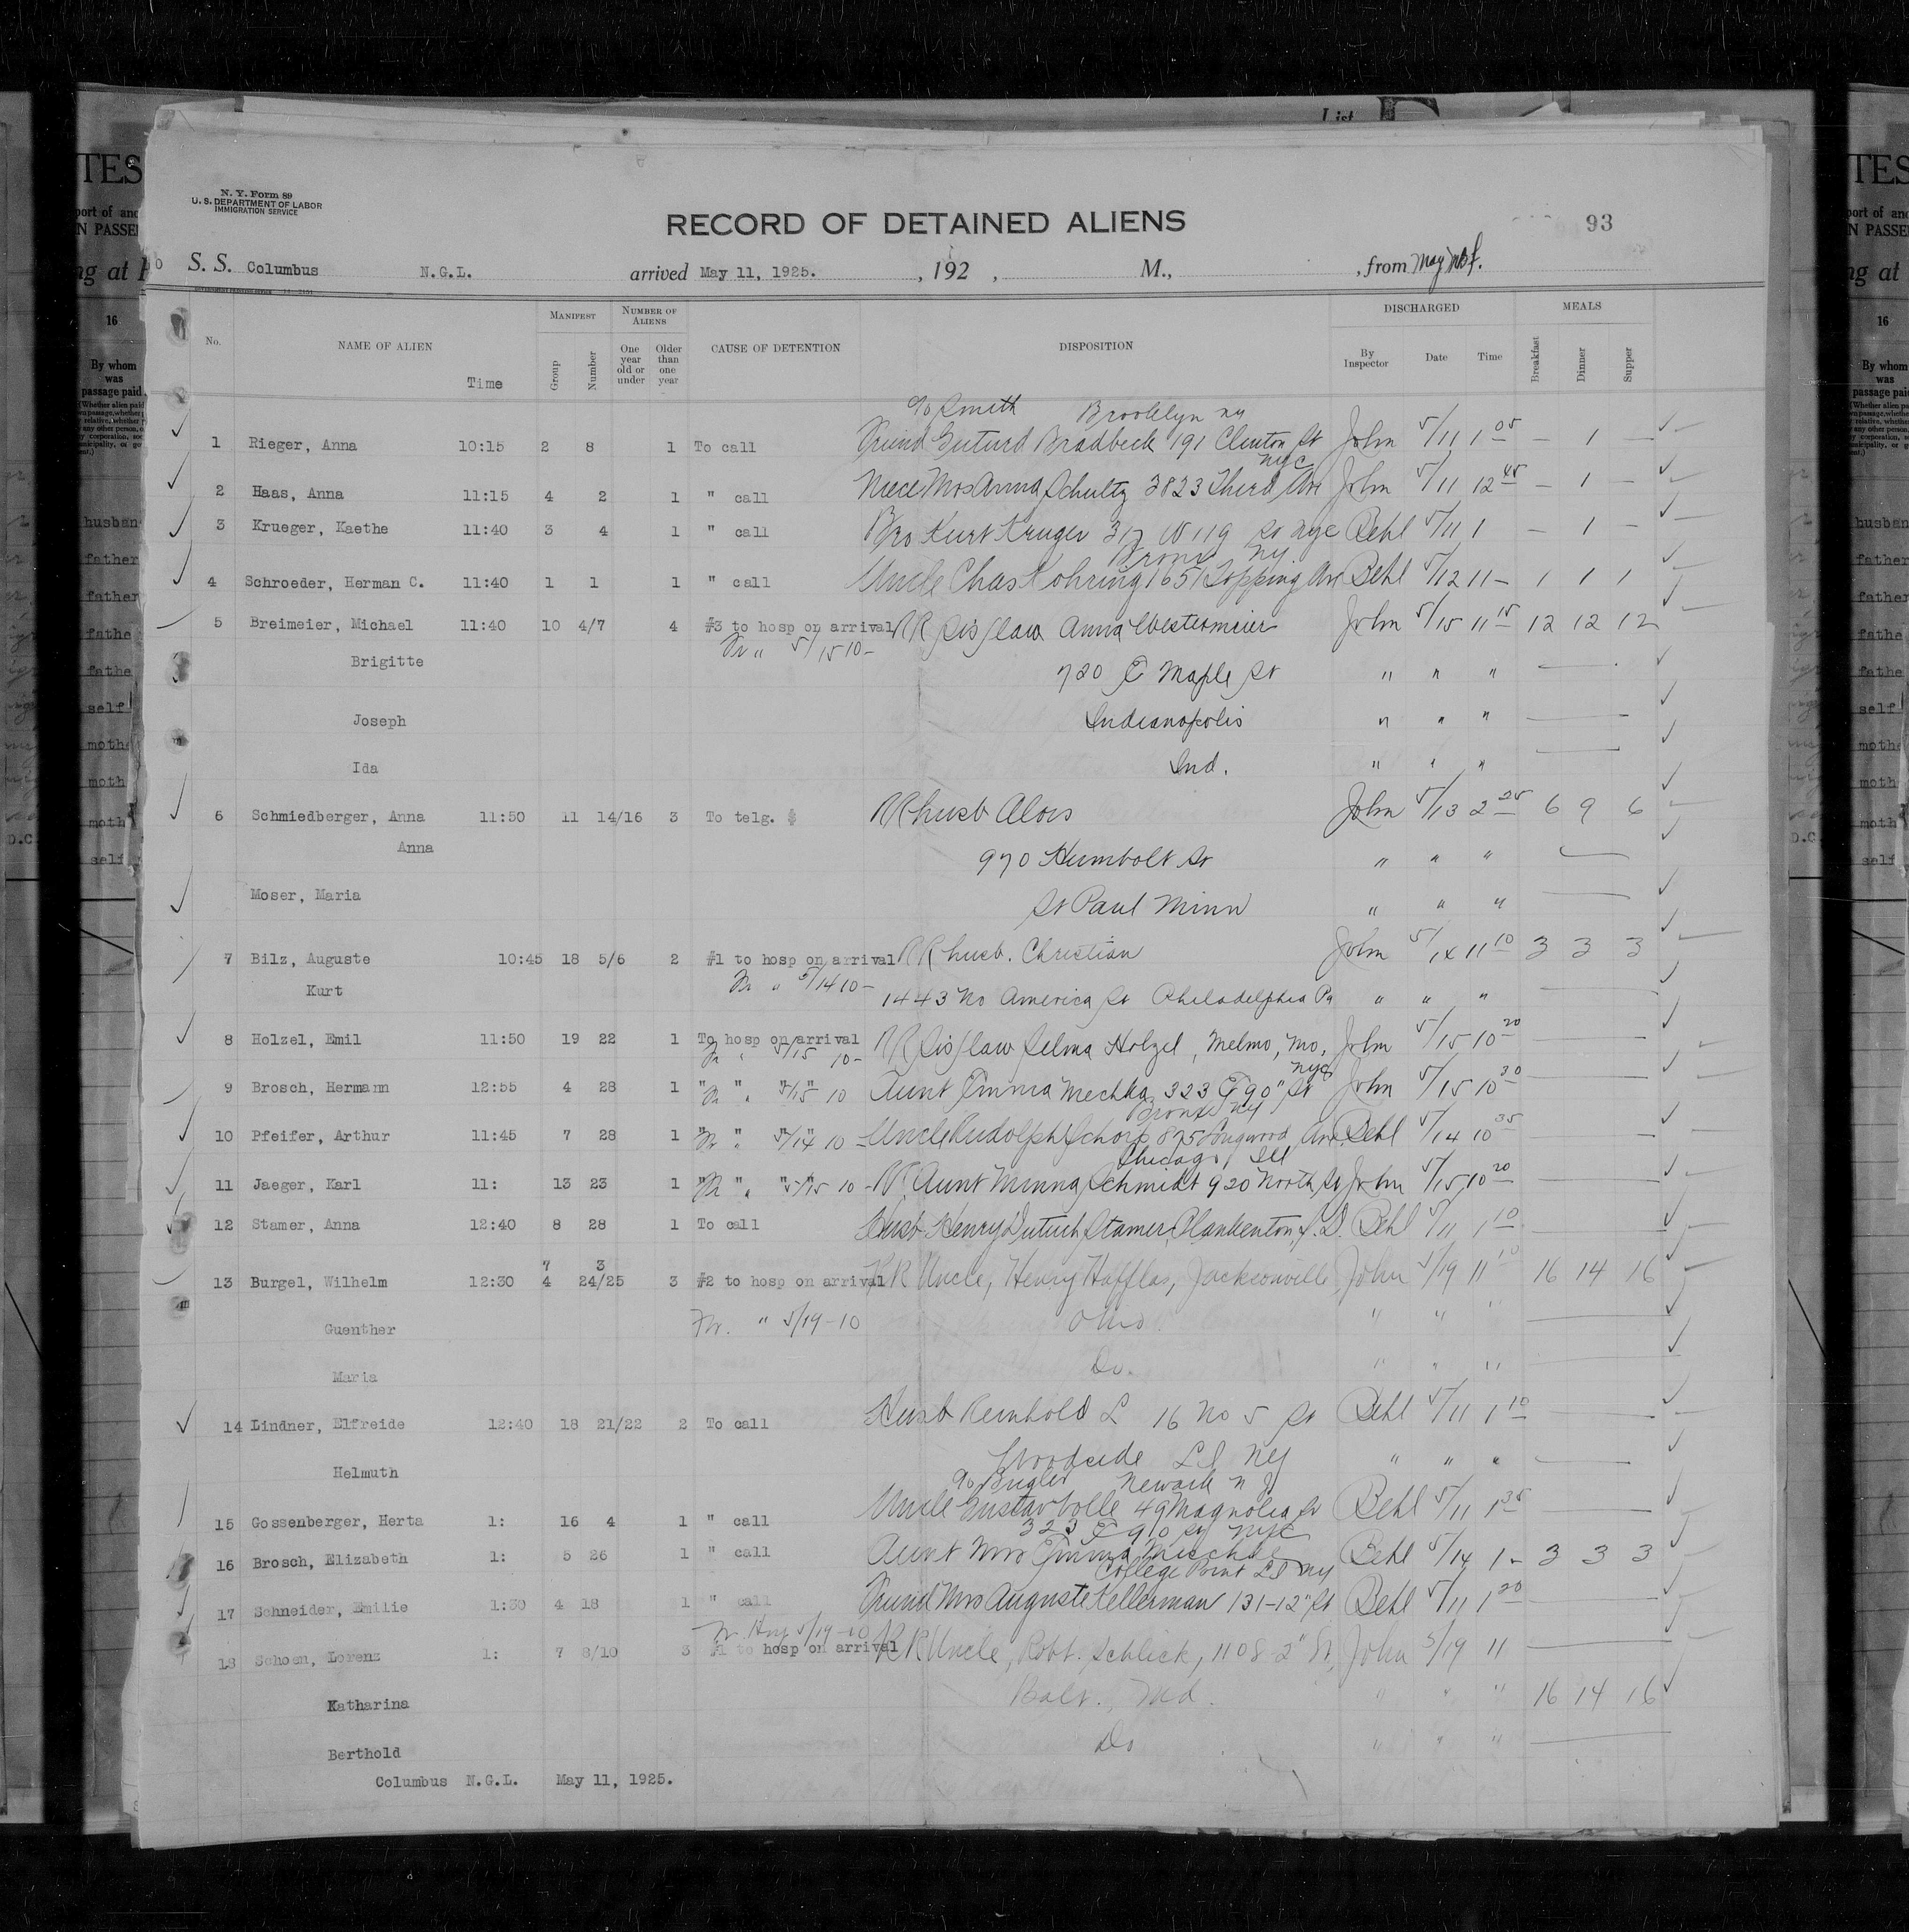 N. Y. Form 89
U. S. DEPARTMENT OF LABOR
IMMIGRATION SERVICE
RECORD OF DETAINED ALIENS
93
S. S. Columbus N.G.L. arrived May 11, 1925. , 192 , M., , from
No. NAME OF ALIEN Time MANIFEST Group Number NUMBER OF ALIENS One year old or under Older than one year CAUSE OF DETENTION DISPOSITION DISCHARGED By Inspector Date Time MEALS Breakfast Dinner Supper
c/o Smith Brooklyn NY
1 Rieger, Anna 10:15 2 8 1 To call Friend Bradbeck 191 Clinton St John 5/11 1 05 — 1 —
NYC
2 Haas, Anna 11:15 4 2 1 " call Niece Mrs Anna Schultz 3823 Third Ave John 5/11 12 45 — 1 —
3 Krueger, Kaethe 11:40 3 4 1 " call Bro Kurt Kruger 317 W 119 St nyc Behl 5/11 1 — 1 —
Bronx NY
4 Schroeder, Herman C. 11:40 1 1 1 " call Uncle Chas Kohring 1651 Topping Ave Behl 5/12 11 — 1 1 1
5 Breimeier, Michael 11:40 10 4/7 4 #3 to hosp on arrival RR Sis/law Anna Westermeier John 5/15 11 15 12 12 12
Fr " 5/15 10 —
Brigitte 720 E Maple St " " "
Joseph Indianapolis " " "
Ida Ind. " " "
6 Schmiedberger, Anna 11:50 11 14/16 3 To telg. RR husb Alois John 5/13 2 25 6 9 6
Anna 970 Humbolt St " " "
Moser, Maria St Paul Minn " " "
7 Bilz, Auguste 10:45 18 5/6 2 #1 to hosp on arrival RR husb. Christian John 5/14 11 10 3 3 3
Fr " 5/14 10 —
Kurt 1443 No America St Philadelphia Pa " " "
8 Holzel, Emil 11:50 19 22 1 To hosp on arrival RR Sis/law Selma Holzel, Melmo, Mo. John 5/15 10 20
Fr " 5/15 10 —
NYC
9 Brosch, Hermann 12:55 4 28 1 " " " " Aunt Emma Mechka 323 E 90" St John 5/15 10 30
Fr " 5/15 10
Bronx NY
10 Pfeifer, Arthur 11:45 7 28 1 " " " " Uncle Rudolph Schorp 875 Longwood Ave Behl 5/14 10 35
Fr " 5/14 10 —
Chicago Ill
11 Jaeger, Karl 11: 13 23 1 " " " " Aunt Minna Schmidt 920 North St John 5/15 10 20
Fr " 5/15 10 —
12 Stamer, Anna 12:40 8 28 1 To call Husb Henry Stamer, Plankenton, S. D. Behl 5/11 1 10
7 3
13 Burgel, Wilhelm 12:30 4 24/25 3 #2 to hosp on arrival RR Uncle, Henry Hafflas, Jacksonville, John 5/19 11 10 16 14 16
Guenther Fr. " 5/19-10 Ohio " " "
Maria Do. " " "
14 Lindner, Elfreide 12:40 18 21/22 2 To call Husb Reinhold L 16 No 5 St Behl 5/11 1 10
Helmuth Woodside L I NY " " "
c/o Bugler Newark N J
15 Gossenberger, Herta 1: 16 4 1 " call Uncle Gustav Volle 49 Magnolia St Behl 5/11 1 35
323 E 90 St NYC
16 Brosch, Elizabeth 1: 5 26 1 " call Aunt Mrs Emma Behl 5/14 1 — 3 3 3
College Point L I NY
17 Schneider, Emilie 1:30 4 18 1 " call Friend Mrs Auguste Kellerman 131-12" St Behl 5/11 1 20
Fr Hosp 5/19-10
18 Schoen, Lorenz 1: 7 8/10 3 #1 to hosp on arrival RR Uncle, Robt. Schlick, 1108 2" St, John 5/19 11
Katharina Balt., Md. " " " 16 14 16
Berthold Do " " "
Columbus N.G.L. May 11, 1925.